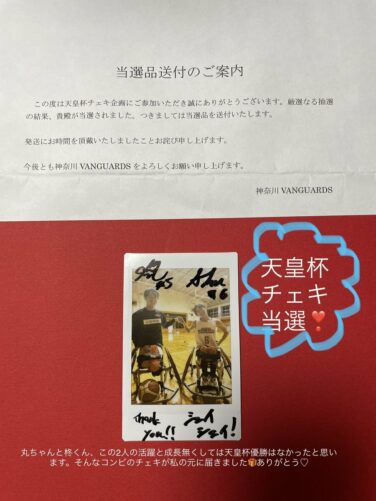 当選品送付のご案内
この度は天皇杯チェキ企画にご参加いただき誠にありがとうございます。厳選なる抽選
の結果、貴殿が当選されました。つきましては当選品を送付いたします。
発送にお時間を頂戴いたしましたことお詫び申し上げます。
今後とも神奈川 VANGUARDS をよろしくお願い申し上げます。
神奈川 VANGUARDS
天皇杯
チェキ
当選❣️
Thank
you!!
丸ちゃんと柊くん、この2人の活躍と成長無くしては天皇杯優勝はなかったと思い
ます。そんなコンビのチェキが私の元に届きました🎁ありがとう♡